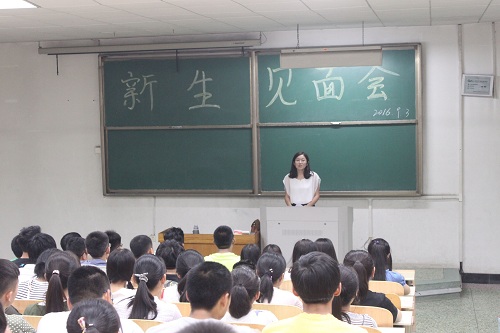 新生见面会
2016 9.3